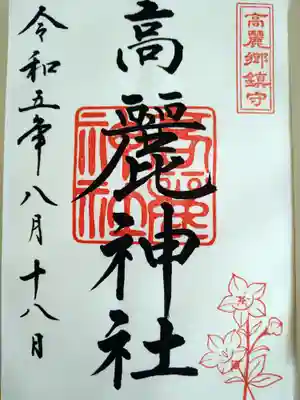 高麗郷鎮守
高麗神社
令和五年八月十八日